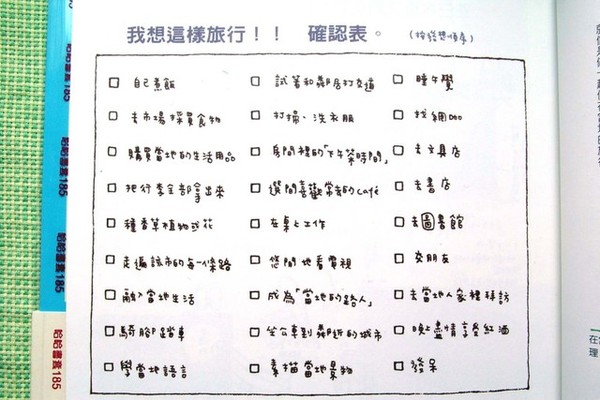 我想這樣旅行!! 確認表。(按發想順序)
□ 自己煮飯
□ 去市場採買食物
□ 購買當地的生活用品
□ 把行李全部拿出來
□ 種香草植物或花
□ 走遍該市的每一條路
□ 融入當地生活
□ 騎腳踏車
□ 學當地語言
□ 試著和鄰居打交道
□ 打掃、洗衣服
□ 房間裡的「下午茶時間」
□ 選間喜歡常去的Café
□ 在桌上工作
□ 悠閒地看電視
□ 成為「當地的路人」
□ 坐公車到鄰近的城市
□ 素描當地景物
□ 睡午覺
□ 找網咖
□ 去文具店
□ 去書店
□ 去圖書館
□ 交朋友
□ 去當地人家裡拜訪
□ 晚上盡情享受紅酒
□ 發呆
哈哈書套185
哈哈書套185
哈哈書套185
哈哈書套185